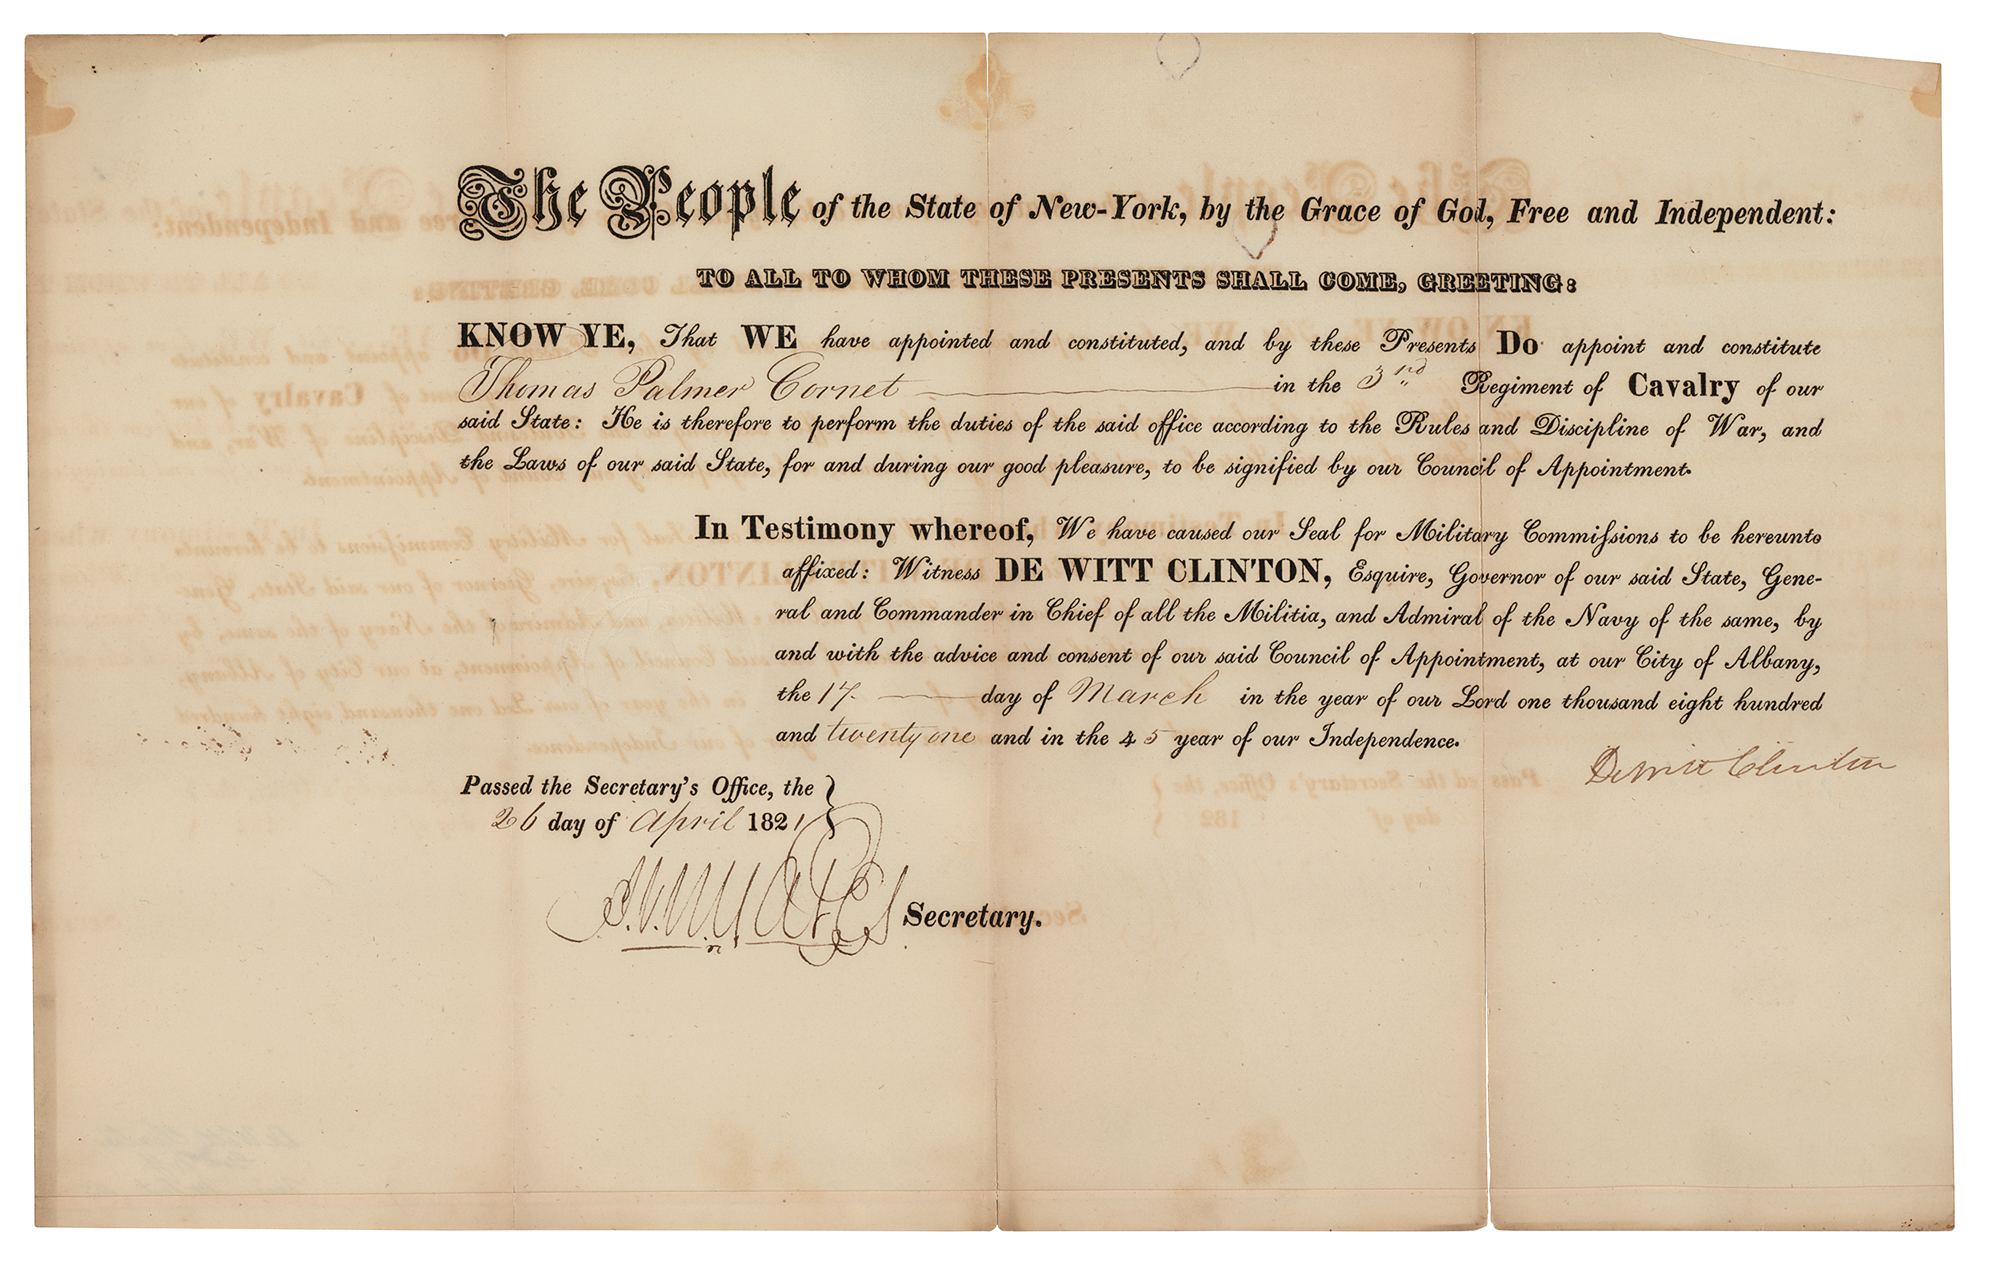 The People of the State of New-York, by the Grace of God, Free and Independent:
TO ALL TO WHOM THESE PRESENTS SHALL COME, GREETING:
KNOW YE, That WE have appointed and constituted, and by these Presents Do appoint and constitute
Thomas Palmer Cornet in the 3rd Regiment of Cavalry of our
said State: He is therefore to perform the duties of the said office according to the Rules and Discipline of War, and
the Laws of our said State, for and during our good pleasure, to be signified by our Council of Appointment.
In Testimony whereof, We have caused our Seal for Military Commiſsions to be hereunto
affixed: Witness DE WITT CLINTON, Esquire, Governor of our said State, Gene-
ral and Commander in Chief of all the Militia, and Admiral of the Navy of the same, by
and with the advice and consent of our said Council of Appointment, at our City of Albany,
the 17. day of March in the year of our Lord one thousand eight hundred
and twenty one and in the 45 year of our Independence.
DeWitt Clinton
Passed the Secretary's Office, the
26 day of April 1821
Secretary.